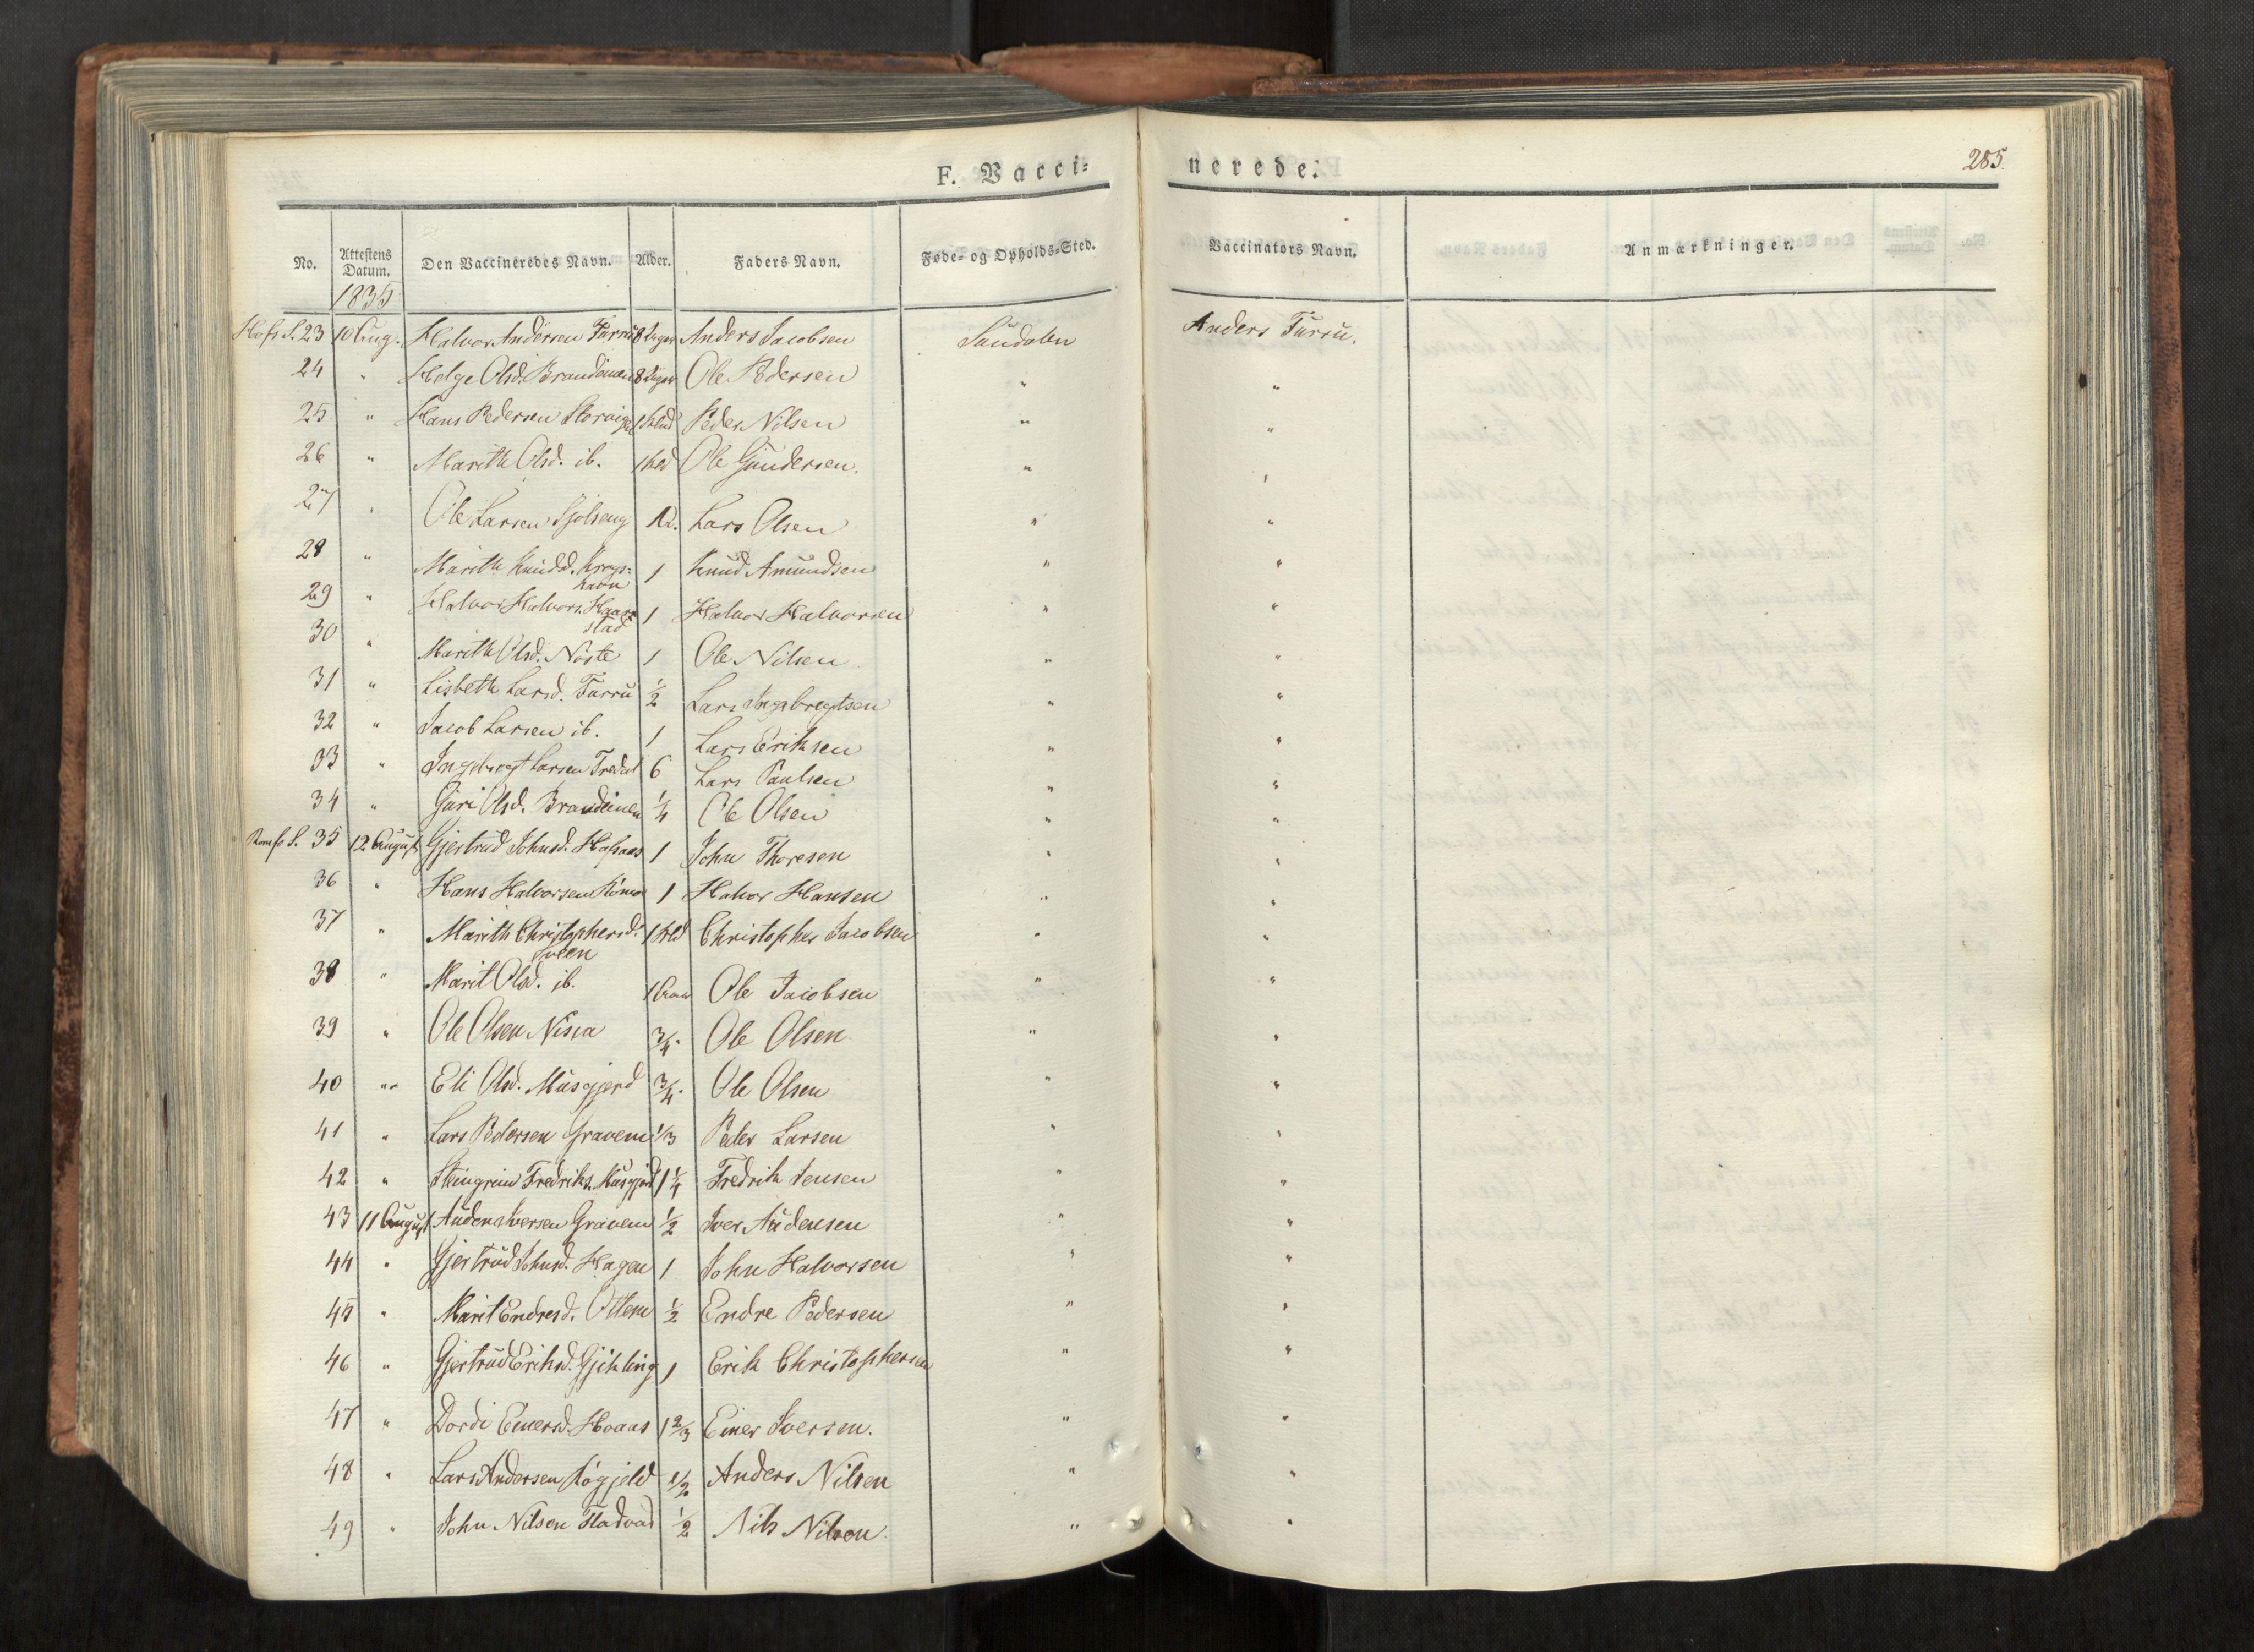 F. Vacci-
nerede.
285.
No. Attestens Datum. Den Vaccineredes Navn. Alder. Faders Navn. Føde- og Opholds-Sted. Vaccinators Navn. Anmærkninger.
1835
23 10 Aug. Halvor Andersen Furru 8 Anders Jacobsen Sundalen Anders Furru.
24 " Helge Olsd. 8 Ole Pedersen " "
25 " Hans Pedersen Peder Nilsen " "
26 " Marith Olsd. ib. Ole Gundersen. " "
27 " Ole Larsen Lars Olsen " "
28 " Marith Knudsd. 1 Knud Amundsen " "
29 " Halvor Halvors. 1 Halvor Halvorsen " "
stad
30 " Marith Olsd. Nøste 1 Ole Nilsen " "
31 " Lisbeth Larsd. Furru 1/2 Lars Ingebregtsen " "
32 " Jacob Larsen ib. 1 Lars Eriksen " "
33 " Ingebregt Larsen Fredal 6 Lars Paulsen " "
34 " Guri Olsd. 1/4 Ole Olsen " "
35 12 August Gjertrud Johnsd. 1 John Thoresen " "
36 " Hans Halvorsen 1 Halvor Hansen " "
37 " Marith Christophersd. Christopher Jacobsen " "
38 " Marit Olsd. ib. Ole Jacobsen " "
39 " Ole Olsen Nisja 3/4. Ole Olsen " "
40 " Eli Olsd. Musgjerd 3/4. Ole Olsen " "
41 " Lars Pedersen Gravem 1/3 Peder Larsen " "
42 " Steingrim Fredriks. Musgjerd 1 1/4 Fredrik Jensen " "
43 11 August Auden Iversen Gravem 1/2 Iver Audensen " "
44 " Gjertrud Johnsd. Hagen 1 John Halvorsen " "
45 " Marit Endresd. Ottem 1/2 Endre Pedersen " "
46 " Gjertrud Eriksd. Gjikling 1 Erik Christophersen " "
47 " Dordi Einersd. Hoaas 1 2/3 Einer Iversen. " "
48 " Lars Andersen Løgjeld 1/2 Anders Nilsen " "
49 " John Nilsen Fladvad 1/2 Nils Nilsen " "